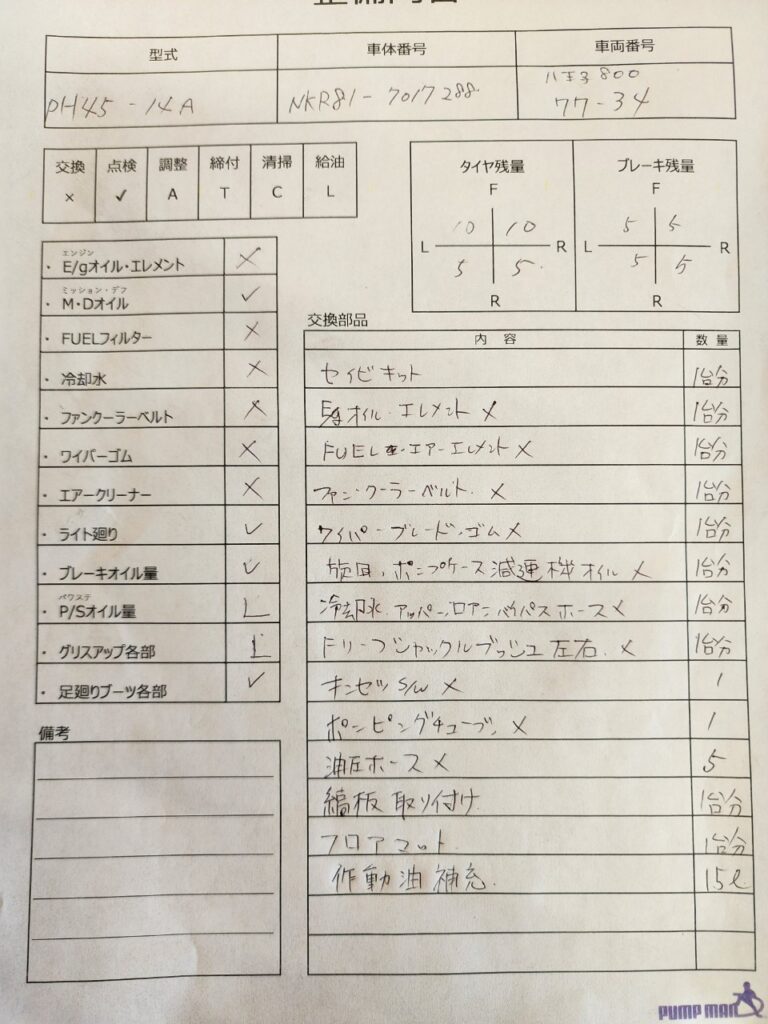 型式 車体番号 車両番号
PH45-14A NKR81-7017288 八王子800
77-34
交換 点検 調整 締付 清掃 給油
× ✓ A T C L
タイヤ残量 ブレーキ残量
F F
10 10 5 5
L R L R
5 5 5 5
R R
エンジン
・E/gオイル・エレメント ×
ミッション・デフ
・M・Dオイル ✓
・FUELフィルター ×
・冷却水 ×
・ファンクーラーベルト ×
・ワイパーゴム ×
・エアークリーナー ×
・ライト廻り ✓
・ブレーキオイル量 ✓
パワステ
・P/Sオイル量 L
・グリスアップ各部 L
・足廻りブーツ各部 ✓
備考
交換部品
内容 数量
セイビキット 1台分
E/gオイル・エレメント × 1台分
FUEL エアーエレメント × 1台分
ファン・クーラーベルト × 1台分
ワイパーブレード、ゴム × 1台分
旋回、ポンプケース減速機オイル × 1台分
冷却水、アッパー、ロアー、バイパスホース × 1台分
Fリーフシャックルブッシュ左右 × 1台分
キンセツS/W × 1
ポンピングチューブ × 1
油圧ホース × 5
縞板取り付け 1台分
フロアマット 1台分
作動油補充 15ℓ
PUMP MAN